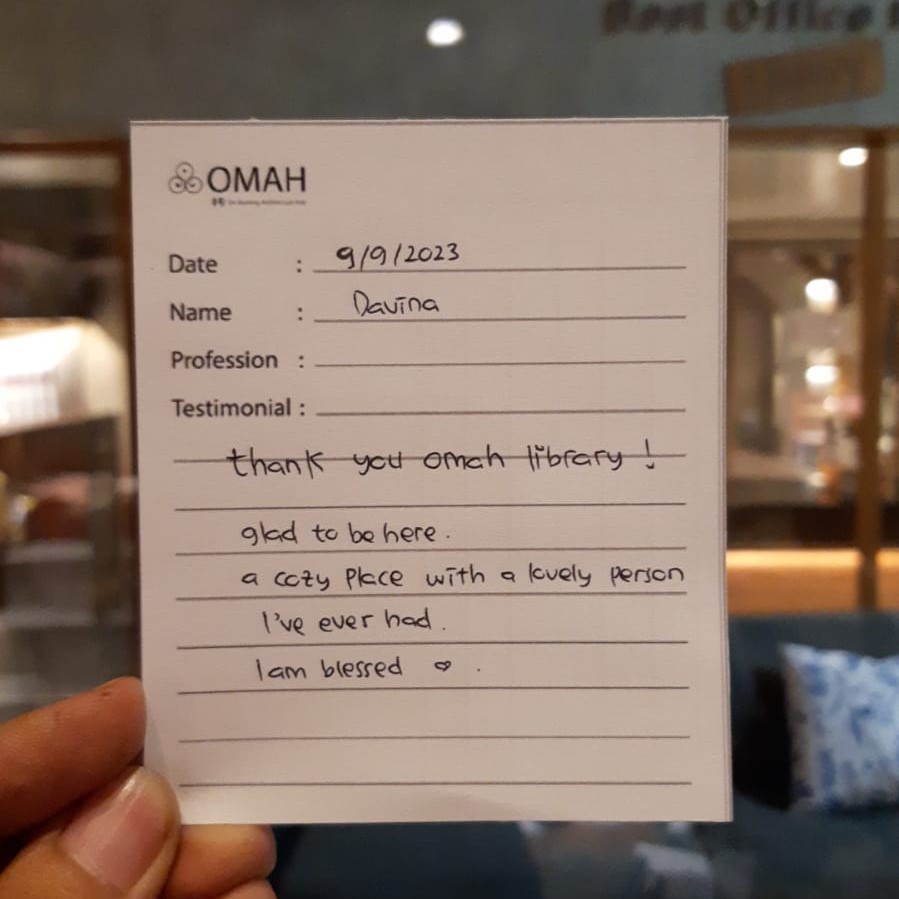 OMAH
Date : 9/9/2023
Name : Davina
Profession :
Testimonial :
thank you omah library !
glad to be here.
a cozy place with a lovely person
I've ever had.
I am blessed ♡ .